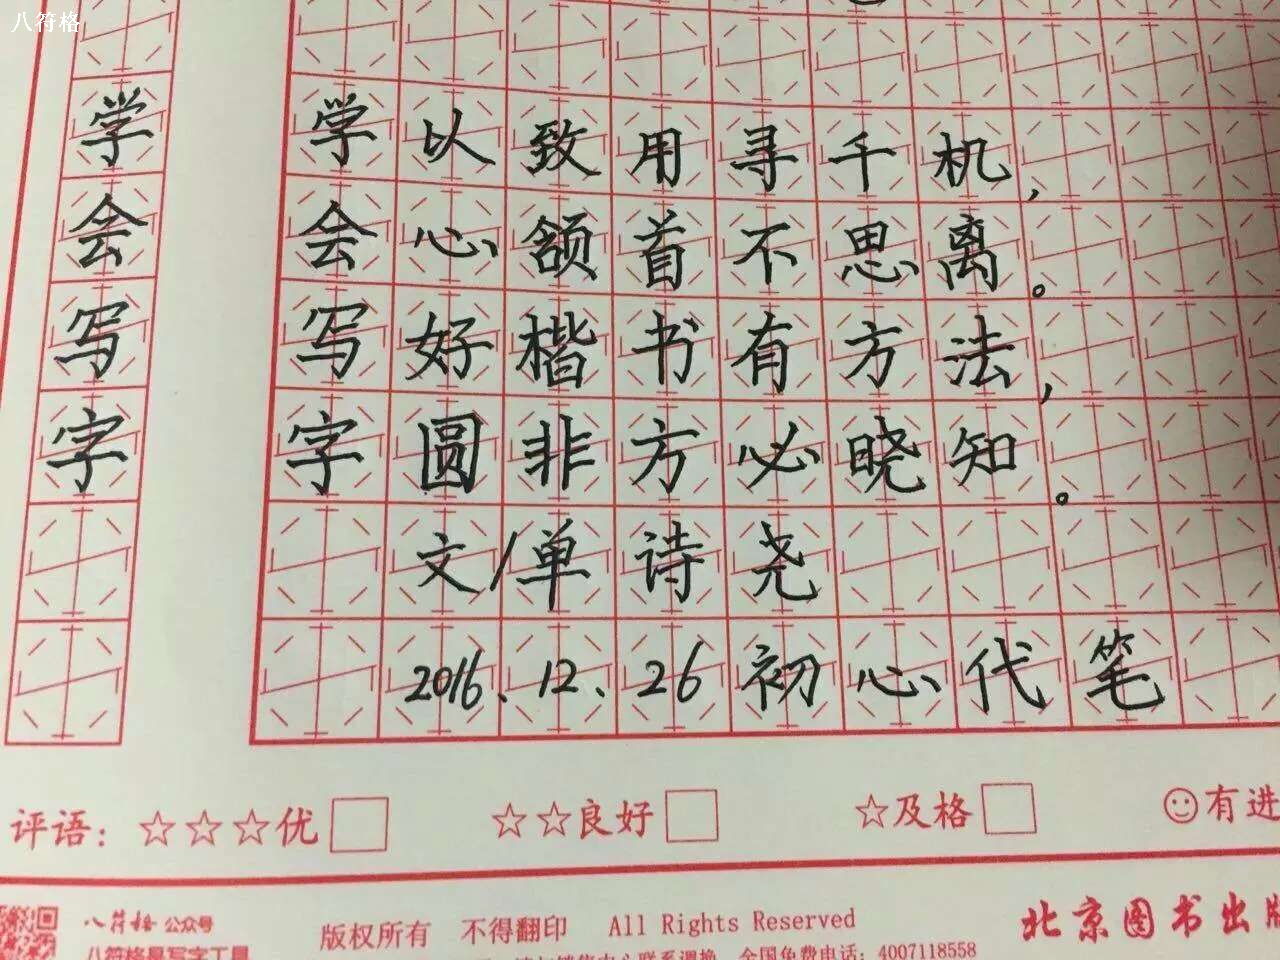 八符格
学
会
写
字
学以致用寻千机，
会心颔首不思离。
写好楷书有方法，
字圆非方必晓知。
文/单诗尧
2016.12.26初心代笔
评语：☆☆☆优 ☆☆良好 ☆及格 有进
八符格 公众号
八符格是写字工具
版权所有 不得翻印 All Rights Reserved
全国免费电话：4007118558
北京图书出版